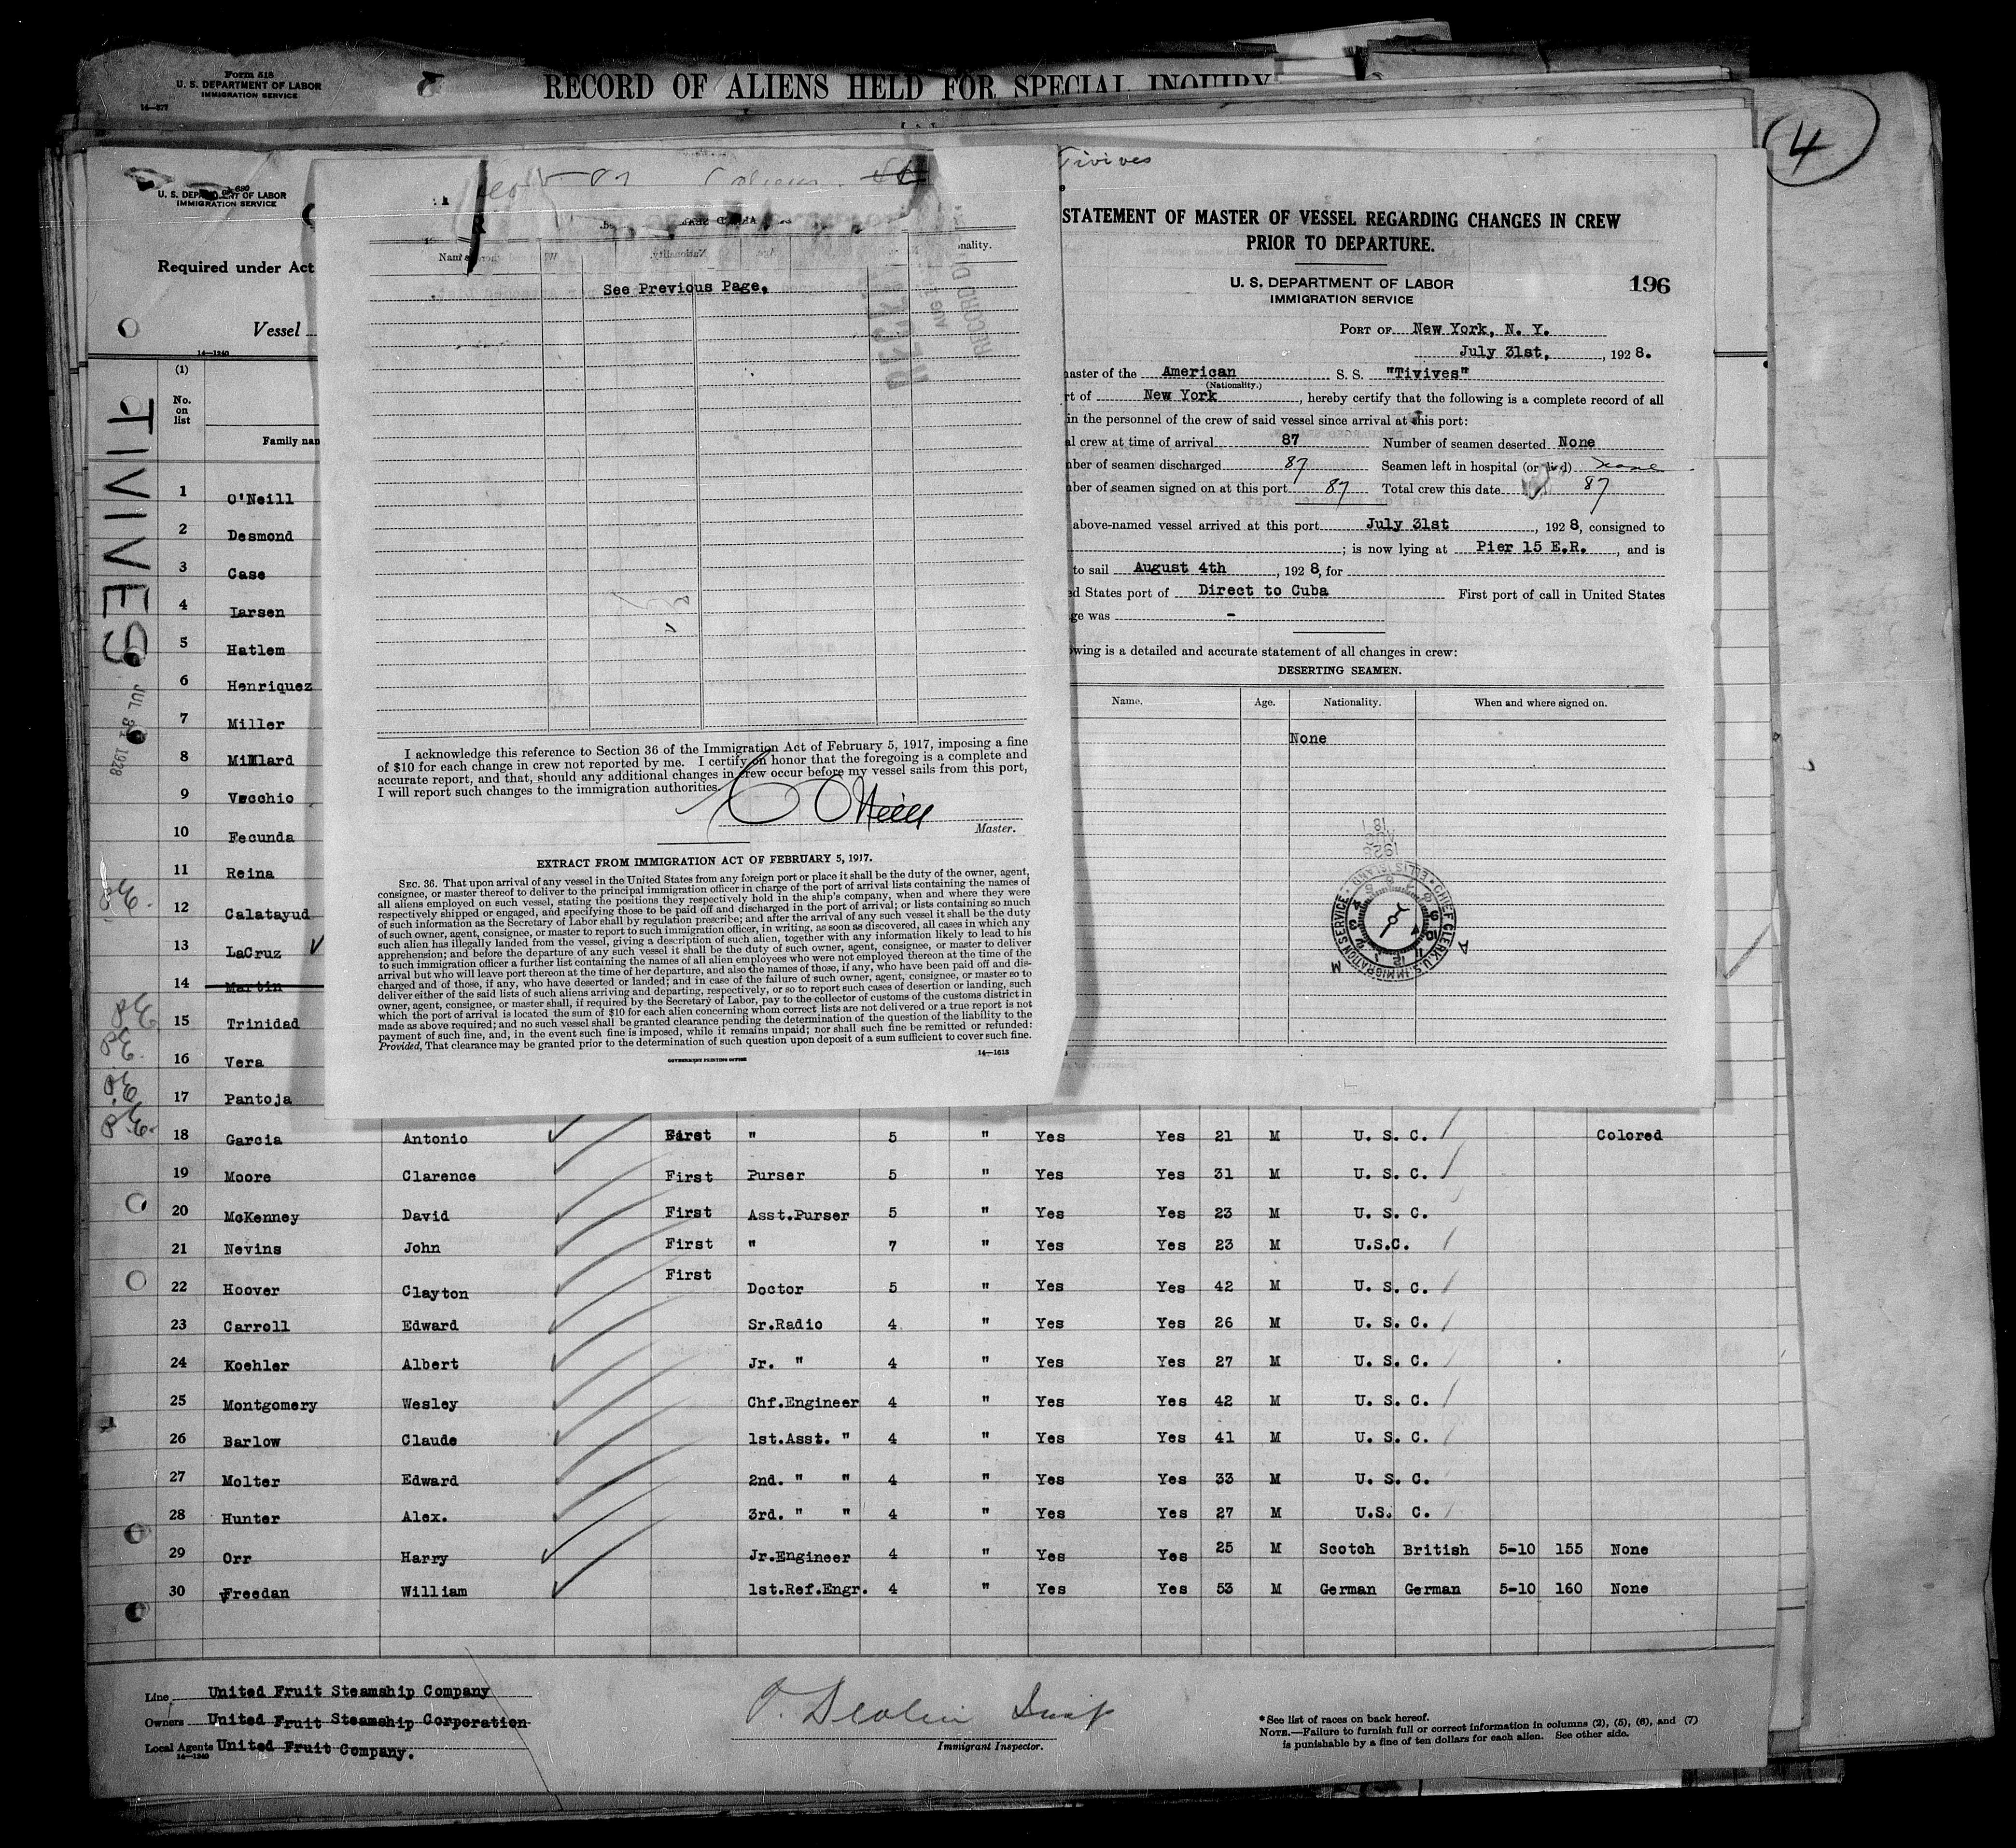 Form 518
U. S. DEPARTMENT OF LABOR
IMMIGRATION SERVICE
14—377
RECORD OF ALIENS HELD FOR SPECIAL INQUIRY
4
680
U. S. DEPARTMENT OF LABOR
IMMIGRATION SERVICE
Required under Act
Vessel
14—1240
(1)
No.
on
list
Family nam
TIVIVES
JUL 31 1928
1 O'Neill
2 Desmond
3 Case
4 Larsen
5 Hatlem
6 Henriquez
7 Miller
8 Millard
9 Vecchio
10 Fecunda
11 Reina
12 Calatayud
13 LaCruz
14 Martin
15 Trinidad
16 Vera
17 Pantoja
Name
nality.
See Previous Page.
I acknowledge this reference to Section 36 of the Immigration Act of February 5, 1917, imposing a fine
of $10 for each change in crew not reported by me. I certify on honor that the foregoing is a complete and
accurate report, and that, should any additional changes in crew occur before my vessel sails from this port,
I will report such changes to the immigration authorities.
O'Neill
Master.
EXTRACT FROM IMMIGRATION ACT OF FEBRUARY 5, 1917.
SEC. 36. That upon arrival of any vessel in the United States from any foreign port or place it shall be the duty of the owner, agent,
consignee, or master thereof to deliver to the principal immigration officer in charge of the port of arrival lists containing the names of
all aliens employed on such vessel, stating the positions they respectively hold in the ship's company, when and where they were
respectively shipped or engaged, and specifying those to be paid off and discharged in the port of arrival; or lists containing so much
of such information as the Secretary of Labor shall by regulation prescribe; and after the arrival of any such vessel it shall be the duty
of such owner, agent, consignee, or master to report to such immigration officer, in writing, as soon as discovered, all cases in which any
such alien has illegally landed from the vessel, giving a description of such alien, together with any information likely to lead to his
apprehension; and before the departure of any such vessel it shall be the duty of such owner, agent, consignee, or master to deliver
to such immigration officer a further list containing the names of all alien employees who were not employed thereon at the time of the
arrival but who will leave port thereon at the time of her departure, and also the names of those, if any, who have been paid off and dis-
charged and of those, if any, who have deserted or landed; and in case of the failure of such owner, agent, consignee, or master so to
deliver either of the said lists of such aliens arriving and departing, respectively, or so to report such cases of desertion or landing, such
owner, agent, consignee, or master shall, if required by the Secretary of Labor, pay to the collector of customs of the customs district in
which the port of arrival is located the sum of $10 for each alien concerning whom correct lists are not delivered or a true report is not
made as above required; and no such vessel shall be granted clearance pending the determination of the question of the liability to the
payment of such fine, and, in the event such fine is imposed, while it remains unpaid; nor shall such fine be remitted or refunded:
Provided, That clearance may be granted prior to the determination of such question upon deposit of a sum sufficient to cover such fine.
GOVERNMENT PRINTING OFFICE
14—1613
Tivives
STATEMENT OF MASTER OF VESSEL REGARDING CHANGES IN CREW
PRIOR TO DEPARTURE.
U. S. DEPARTMENT OF LABOR
IMMIGRATION SERVICE
196
PORT OF New York, N. Y.
July 31st, , 1928.
aster of the American S. S. "Tivives"
(Nationality.)
rt of New York , hereby certify that the following is a complete record of all
in the personnel of the crew of said vessel since arrival at this port:
al crew at time of arrival 87 Number of seamen deserted None
ber of seamen discharged 87 Seamen left in hospital (or died) none
ber of seamen signed on at this port 87 Total crew this date 87
above-named vessel arrived at this port July 31st , 1928, consigned to
; is now lying at Pier 15 E.R. , and is
to sail August 4th , 1928, for
ed States port of Direct to Cuba First port of call in United States
ge was -
wing is a detailed and accurate statement of all changes in crew:
DESERTING SEAMEN.
Name. Age. Nationality. When and where signed on.
None
CHIEF CLERK U.S. IMMIGRATION SERVICE · ELLIS ISLAND
18 Garcia Antonio First " 5 " Yes Yes 21 M U. S. C. Colored
19 Moore Clarence First Purser 5 " Yes Yes 31 M U. S. C.
20 McKenney David First Asst.Purser 5 " Yes Yes 23 M U. S. C.
21 Nevins John First " 7 " Yes Yes 23 M U.S.C.
22 Hoover Clayton First Doctor 5 " Yes Yes 42 M U. S. C.
23 Carroll Edward Sr.Radio 4 " Yes Yes 26 M U. S. C.
24 Koehler Albert Jr. " 4 " Yes Yes 27 M U. S. C.
25 Montgomery Wesley Chf.Engineer 4 " Yes Yes 42 M U. S. C.
26 Barlow Claude 1st.Asst. " 4 " Yes Yes 41 M U. S. C.
27 Molter Edward 2nd. " " 4 " Yes Yes 33 M U. S. C.
28 Hunter Alex. 3rd. " " 4 " Yes Yes 27 M U.S. C.
29 Orr Harry Jr.Engineer 4 " Yes Yes 25 M Scotch British 5-10 155 None
30 Freedan William 1st.Ref.Engr. 4 " Yes Yes 53 M German German 5-10 160 None
Line United Fruit Steamship Company
Owners United Fruit Steamship Corporation
Local Agents United Fruit Company.
14—1240
Immigrant Inspector.
*See list of races on back hereof.
NOTE.—Failure to furnish full or correct information in columns (2), (5), (6), and (7)
is punishable by a fine of ten dollars for each alien. See other side.